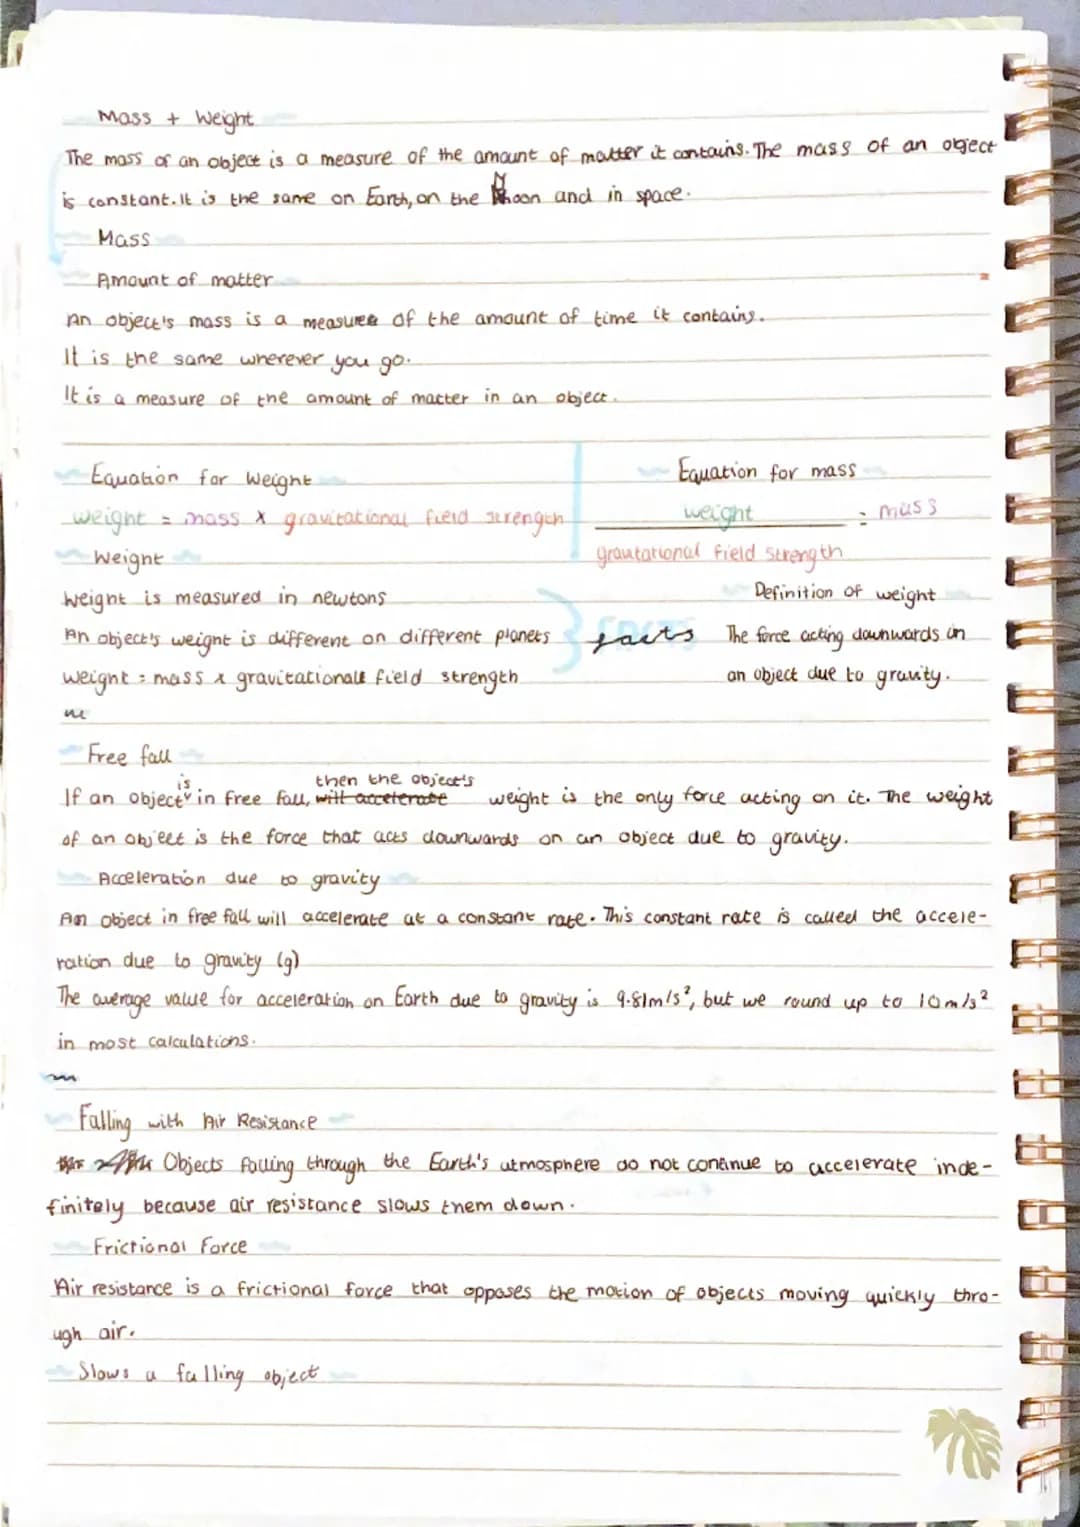 Mass + Weight
The mass of an object is a measure of the amount of matter it contains. The mass of an object
is constant. It is the same on Earth, on the Moon and in space.
Mass
Amount of matter
An object's mass is a measure of the amount of time it contains.
It is the same wherever you go.
It is a measure of the amount of matter in an object.
Equation for Weight
Equation for mass
weight = mass x gravitational field strength
weight = mass
gravitational field strength
Weight
Weight is measured in newtons
Definition of weight
An object's weight is different on different planets
facts
The force acting downwards on
weight = mass x gravitational field strength
an object due to gravity.
Free fall
is then the object's
If an object in free fall, will accelerate weight is the only force acting on it. The weight
of an object is the force that acts downwards on an object due to gravity.
Acceleration due to gravity
An object in free fall will accelerate at a constant rate. This constant rate is called the accele-
ration due to gravity (g)
The average value for acceleration on Earth due to gravity is 9.81m/s², but we round up to 10m/s²
in most calculations.
Falling with Air Resistance
Objects falling through the Earth's atmosphere do not continue to accelerate inde-
finitely because air resistance slows them down.
Frictional Force
Air resistance is a frictional force that opposes the motion of objects moving quickly thro-
ugh air.
Slows a falling object